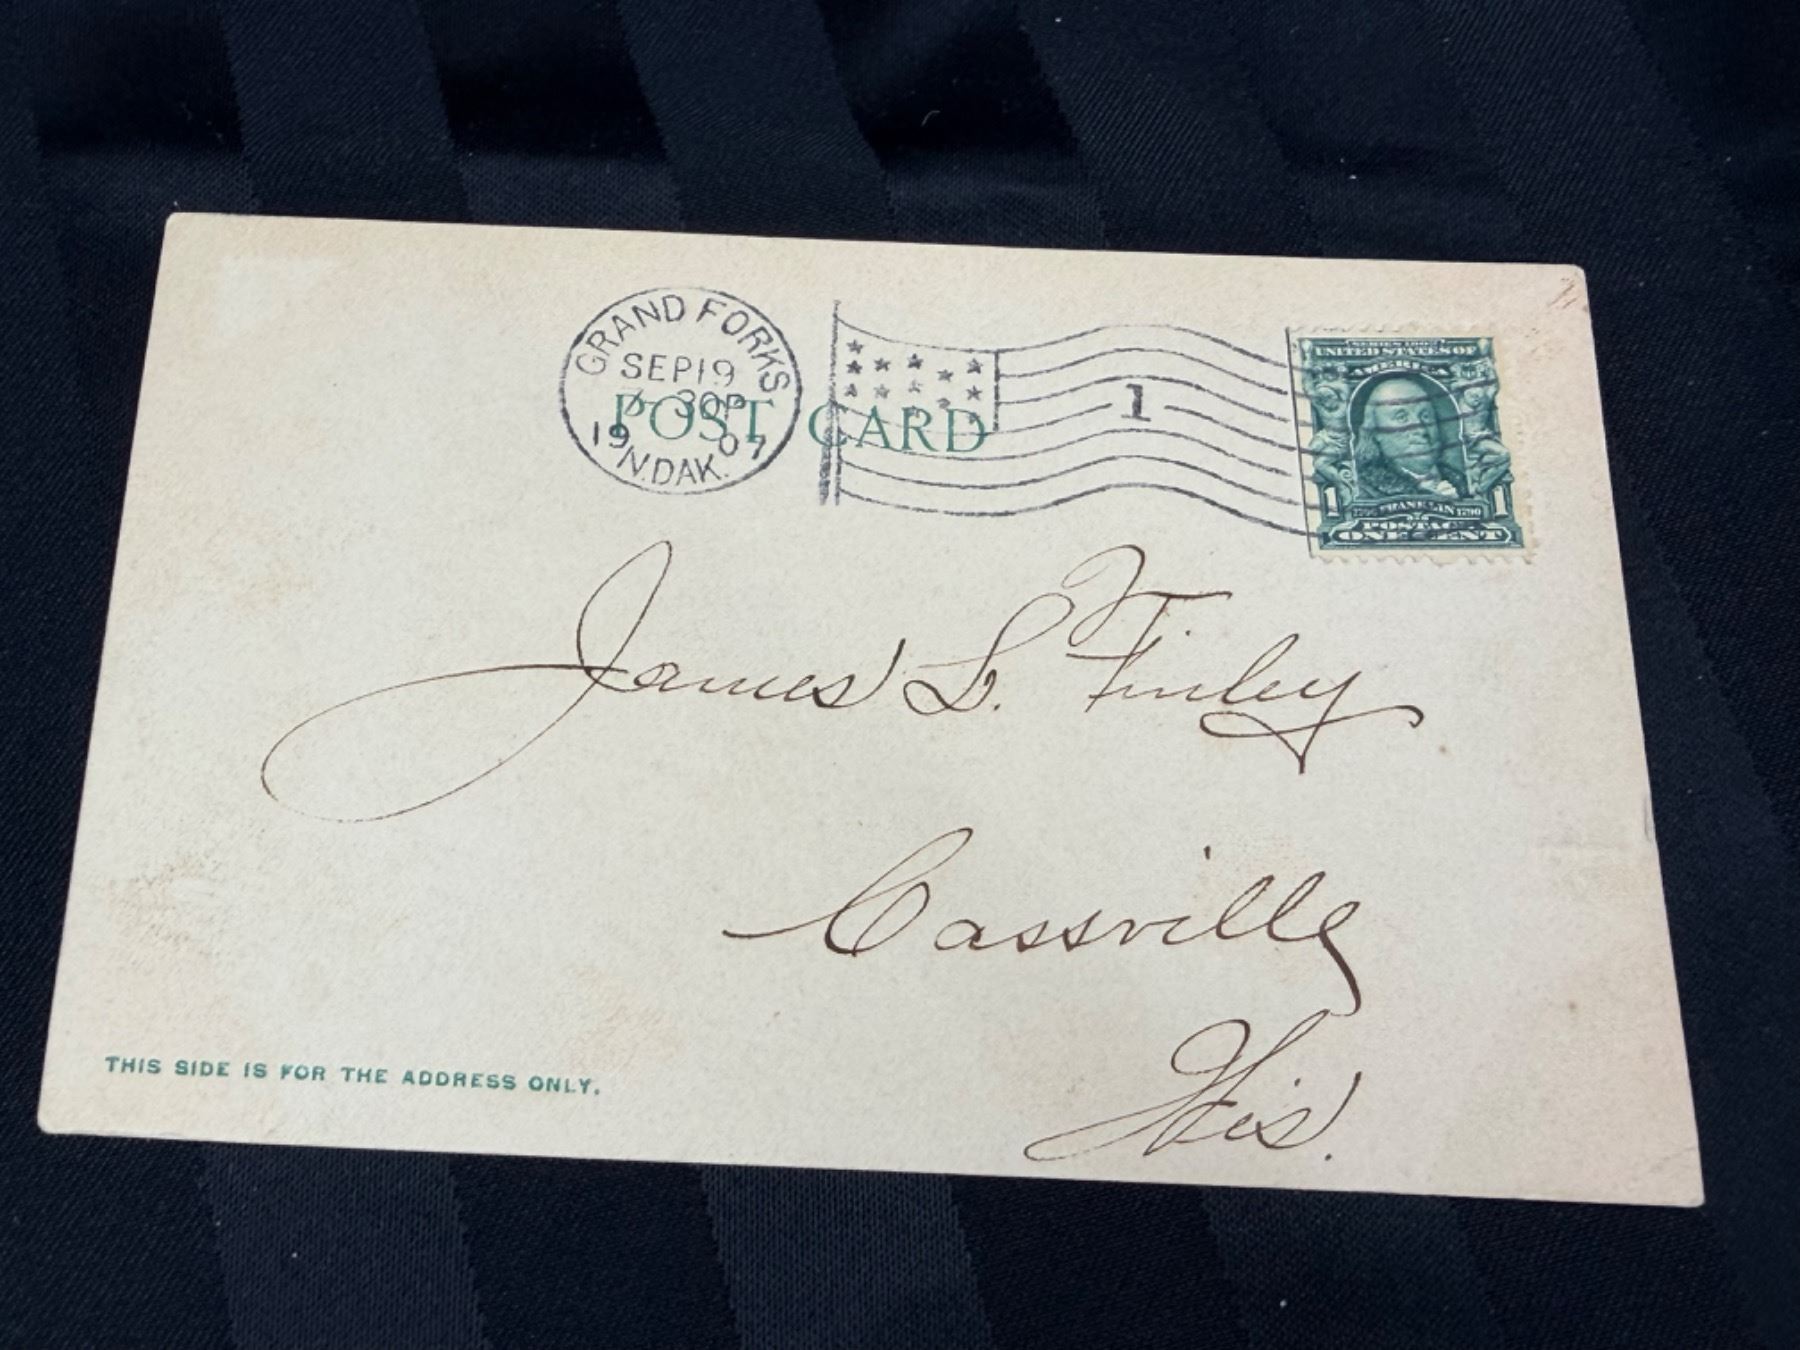 GRAND FORKS
SEP 19
30P
1907
N.DAK.
1
POST CARD
SERIES 1902
UNITED STATES OF
AMERICA
1 FRANKLIN 1790 1
POSTAGE
ONE CENT
James L. Finley
Cassville
Wis.
THIS SIDE IS FOR THE ADDRESS ONLY.